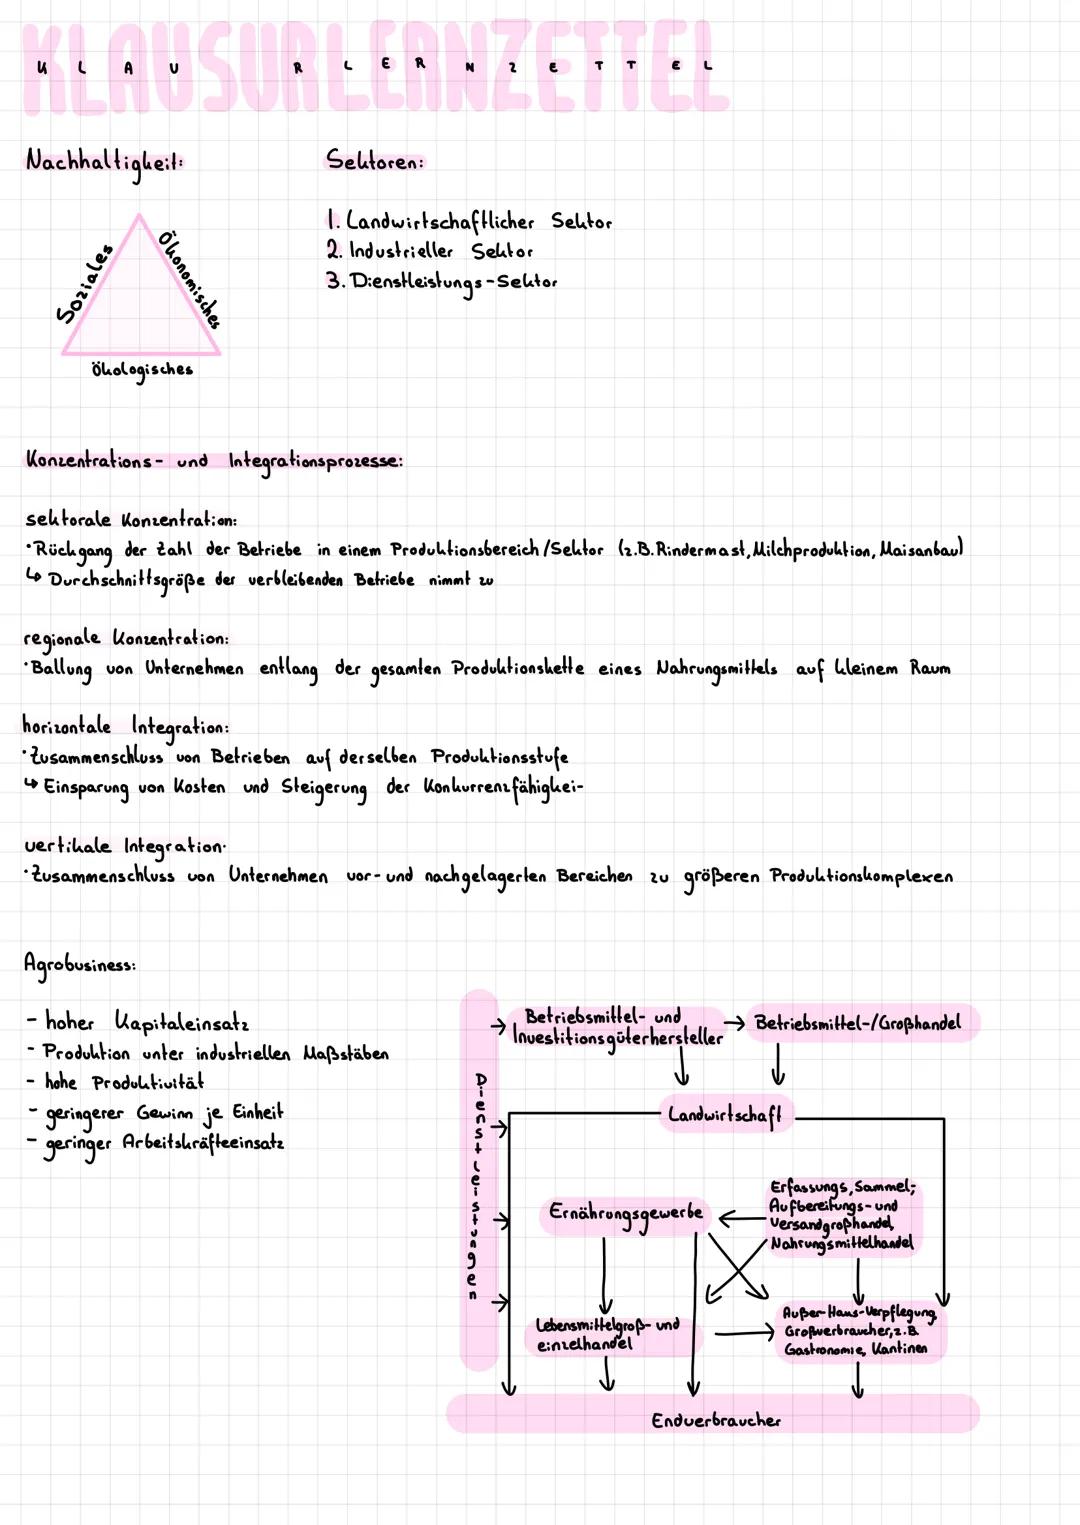 KLAUSURLERNZETTEL
K L A U R L E R N Z E T T E L
Nachhaltigkeit:
Soziales
Ökonomisches
Ökologisches
Sektoren:
1. Landwirtschaftlicher Sektor
2. Industrieller Sektor
3. Dienstleistungs-Sektor
Konzentrations- und Integrationsprozesse:
sektorale Konzentration:
·Rückgang der Zahl der Betriebe in einem Produktionsbereich/Sektor (z.B. Rindermast, Milchproduktion, Maisanbau)
↳ Durchschnittsgröße der verbleibenden Betriebe nimmt zu
regionale Konzentration:
·Ballung von Unternehmen entlang der gesamten Produktionskette eines Nahrungsmittels auf kleinem Raum
horizontale Integration:
·Zusammenschluss von Betrieben auf derselben Produktionsstufe
↳ Einsparung von Kosten und Steigerung der Konkurrenzfähigkei-
vertikale Integration·
·Zusammenschluss von Unternehmen vor- und nachgelagerten Bereichen zu größeren Produktionskomplexen
Agrobusiness:
- hoher Kapitaleinsatz
- Produktion unter industriellen Maßstäben
- hohe Produktivität
- geringerer Gewinn je Einheit
- geringer Arbeitskräfteeinsatz
Dienstleistungen
Betriebsmittel- und
Investitionsgüterhersteller
Betriebsmittel-/Großhandel
Landwirtschaft
Ernährungsgewerbe
Erfassungs, Sammel,-
Aufbereitungs- und
Versandgroßhandel,
Nahrungsmittelhandel
Lebensmittelgroß- und
einzelhandel
Außer-Haus-Verpflegung,
Großverbraucher, z.B.
Gastronomie, Kantinen
Endverbraucher